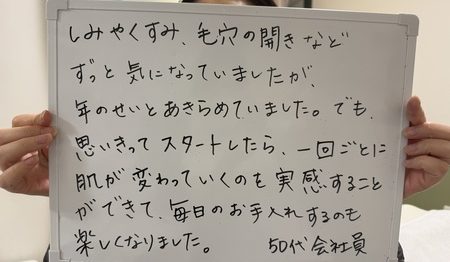 しみやくすみ、毛穴の開きなど
ずっと気になっていましたが、
年のせいとあきらめていました。でも、
思いきってスタートしたら、一回ごとに
肌が変わっていくのを実感すること
ができて、毎日のお手入れするのも
楽しくなりました。 50代会社員